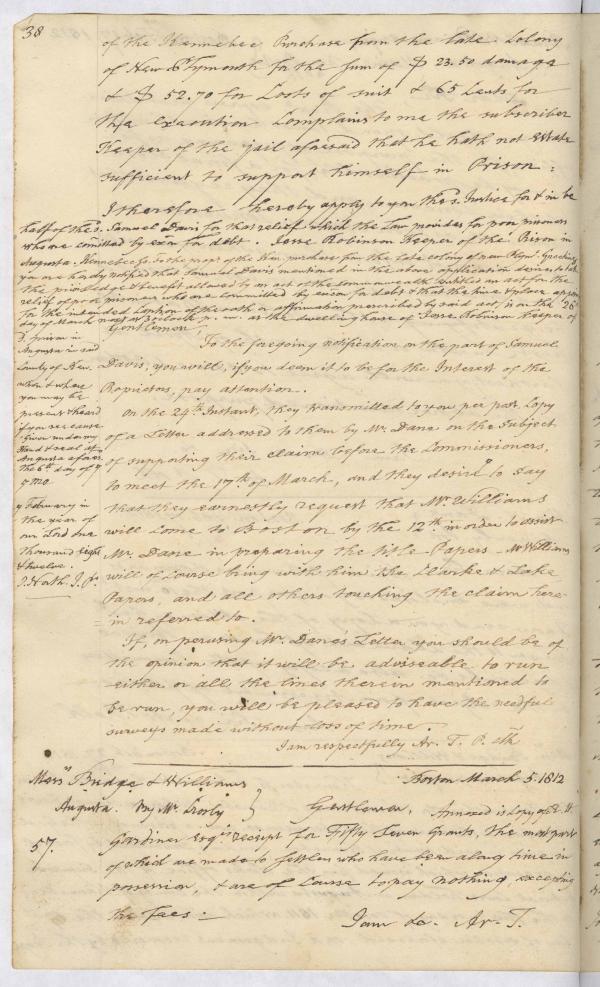 38
of the Kennebec Purchase from the late Colony
of New Plymouth for the sum of $ 23.50 damage
& $ 52.70 for Costs of suit & 65 Cents for
this execution Complains to me the subscriber
Keeper of the jail aforesaid that he hath not Estate
sufficient to support himself in Prison:
I therefore hereby apply to you the s. Justice for & in be
half of the s. Samuel Davis for that relief which the Law provides for poor prisoners
who are comitted by exon for debt. Jesse Robinson Keeper of the Prison in
Augusta. Kennebec ss. To the props of the Ken. purchase from the late colony of new Plym. Greeting
you are hereby notified that Samuel Davis mentioned in the above application desires to take
the priviledge & benefit allowed by an act of the commonwealth entitled an act for the
relief of poor prisoners who are committed by execon for debt & that the time & place
for the intended caption of the oath or affirmation prescribed by said act, is on the 26th
day of March next at 3 oclock p. m. at the dwelling house of Jesse Robinson Keeper of
s. prison in
Augusta in said
County of Ken.
when & where
you may be
present & heard
if you see cause
Given under my
Hand & seal at
Augusta afores
the 6th day of
5 mo
y February in
the year of
our Lord one
thousand eight
& twelve.
J. North. J. Ps
Gentlemen,
To the foregoing notification on the part of Samuel
Davis, you will, if you deem it to be for the Interest of the
Propietors, pay attention.
On the 24th Instant, they transmitted to you per post Copy
of a Letter addressed to them by Mr. Dane on the subject
of supporting their claim before the Commissioners,
to meet the 17th of March, and they desire to say
that they earnestly request that Mr. Williams
will come to Boston by the 12th in order to assist
Mr. Dane in preparing the title-Papers - Mr Williams
will of Course bring with him the Clarke & Lake
Papers, and all others touching the claim here=
=in referred to.
If, on perusing Mr. Dane's Letter you should be of
the opinion that it will be adviseable to run
either or all the lines therein mentioned to
be run, you will be pleased to have the needful
surveys made without loss of time.
I am respectfully Ar. T. P. Clk
Messrs Bridge & Williams
Boston March 5. 1812
Augusta. By Mr. Crosby }
Gentlemen, Annexed is Copy of R. H.
57.
Gardiner Esqrs receipt for Fifty Seven Grants, the most part
of which are made to settlers who have been along time in
possession, & are of Course to pay nothing, excepting
the fees.-
I am &c. Ar. T.